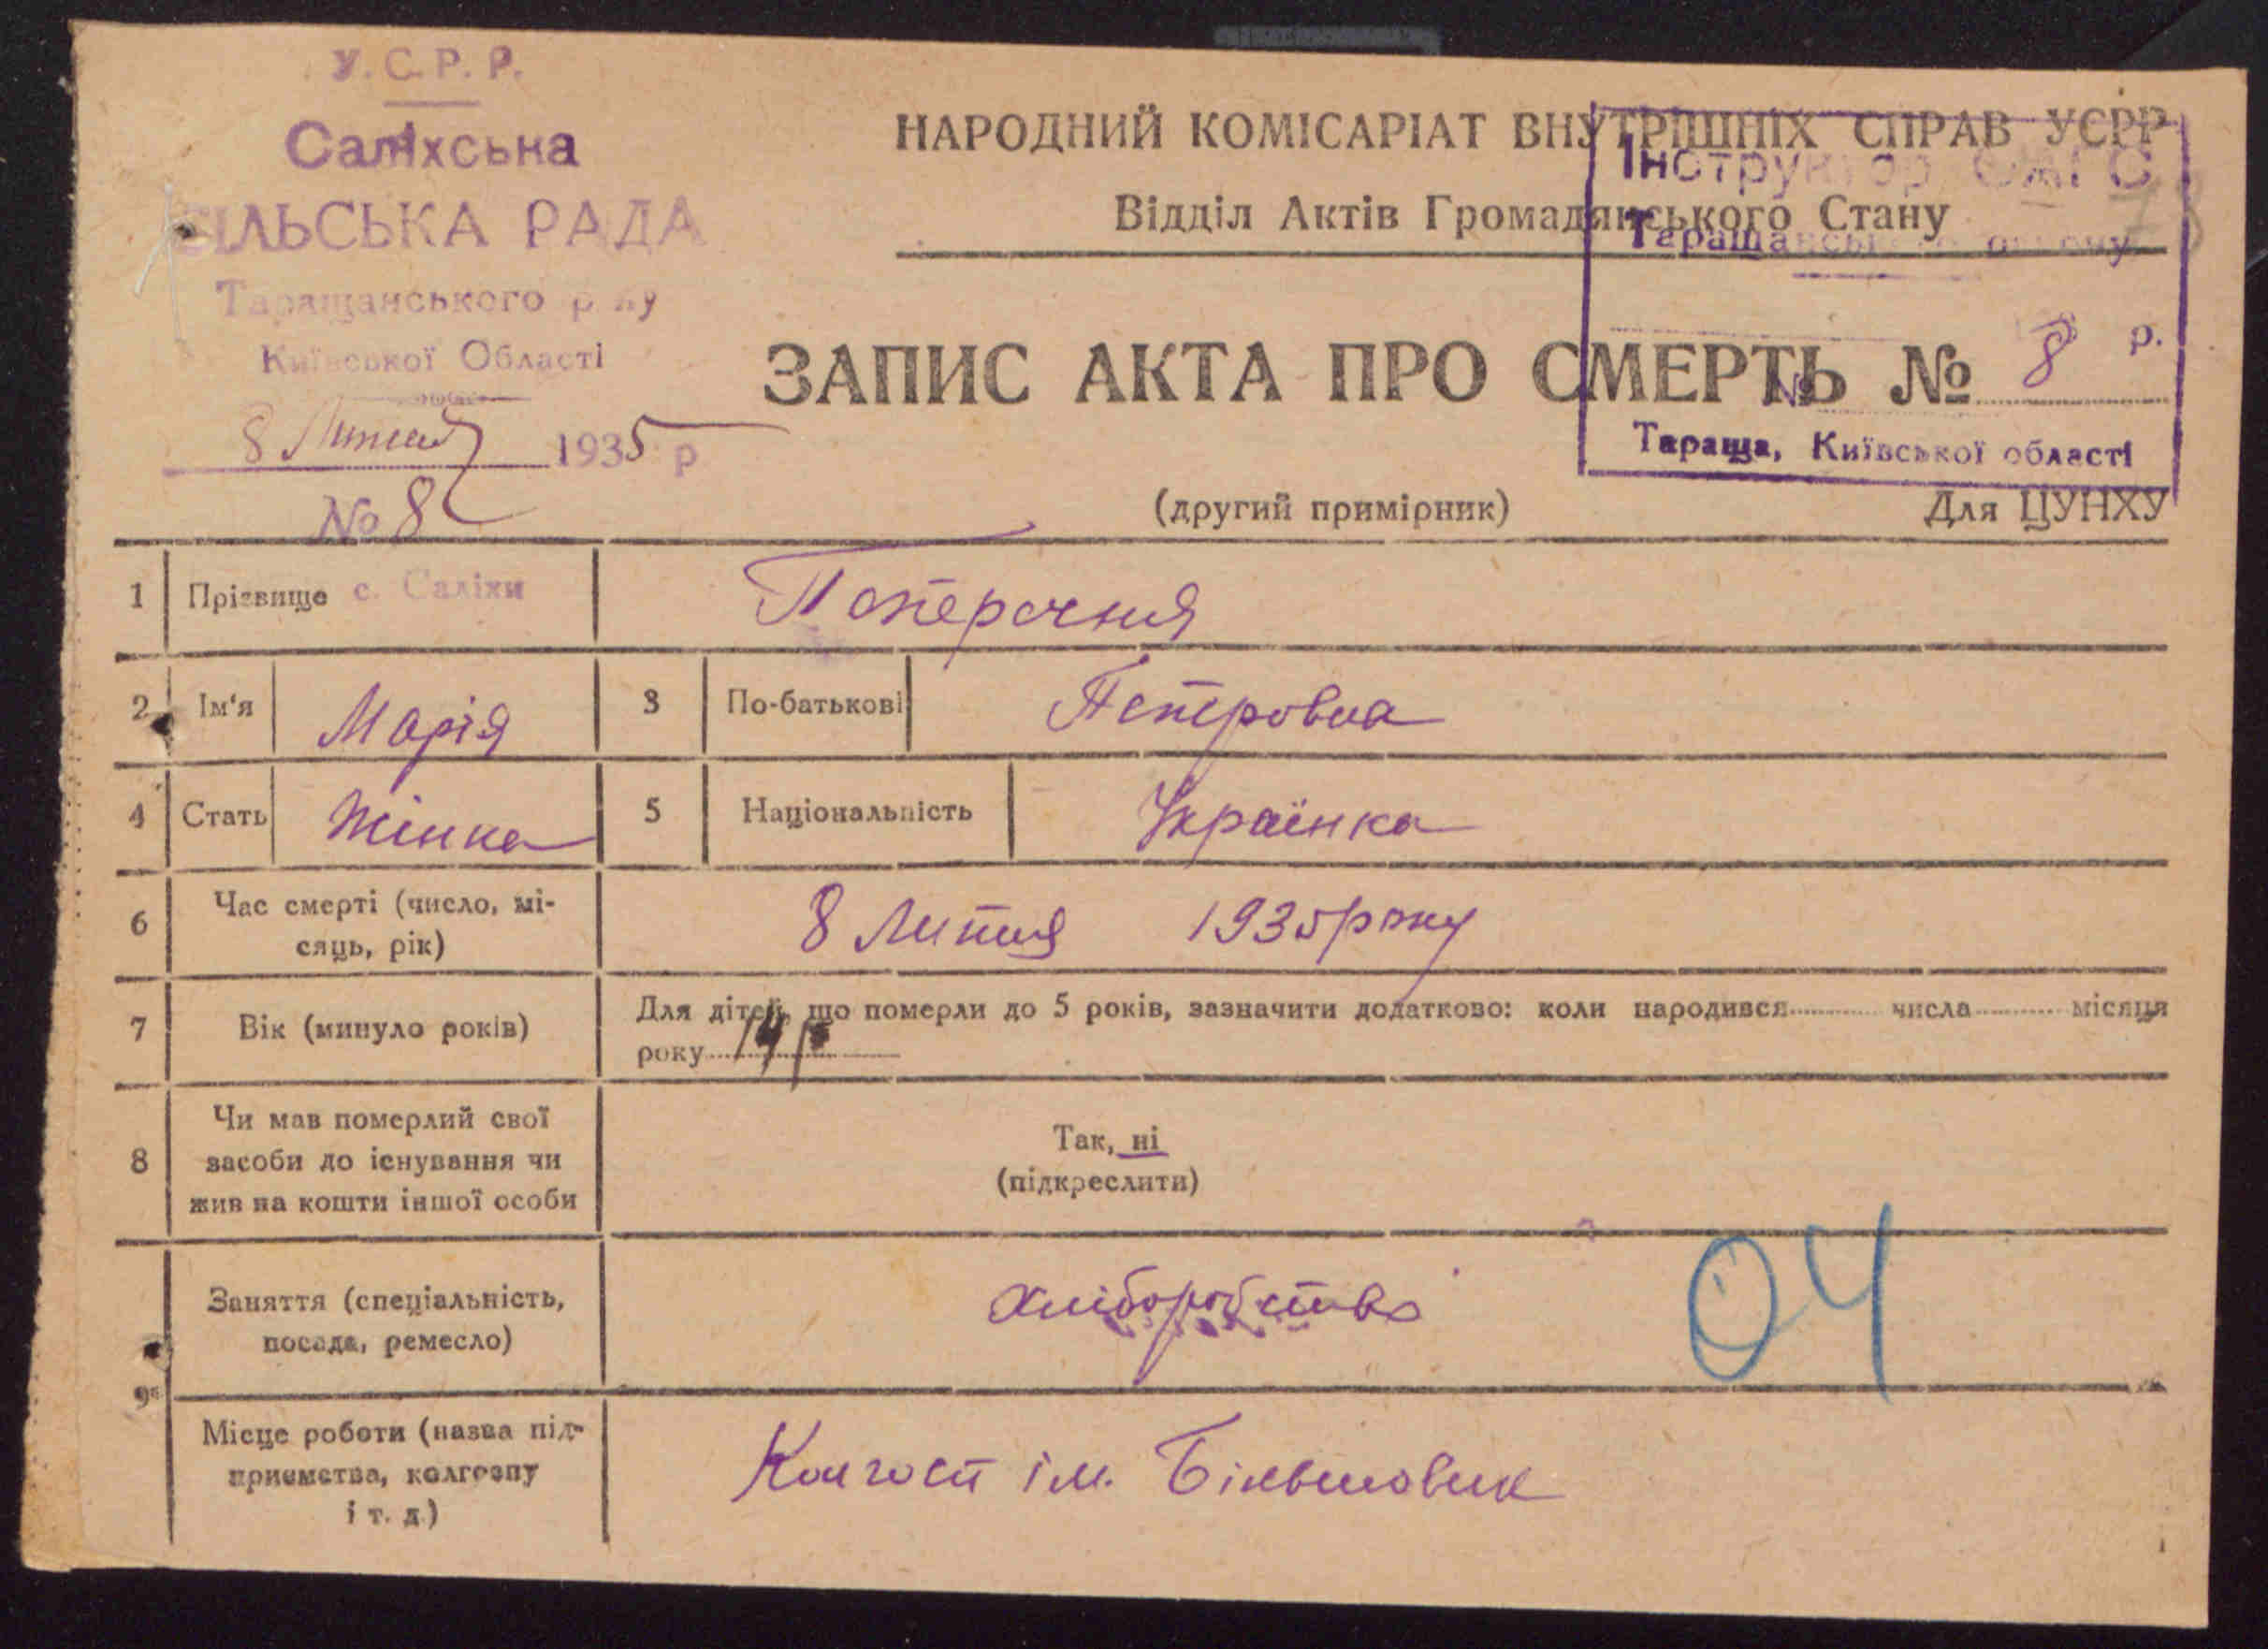 У.С.Р.Р.
Саліхська
СІЛЬСЬКА РАДА
Таращанського р ну
Київської Області
8 Липня 1935 р
№ 8
НАРОДНИЙ КОМІСАРІАТ ВНУТРІШНІХ СПРАВ УСРР
Відділ Актів Громадянського Стану
Інструктор ЗАГС
Таращанського
ЗАПИС АКТА ПРО СМЕРТЬ № 8
р.
№
Тараща, Київської області
(другий примірник)
Для ЦУНХУ
1 Прізвище с. Саліхи Поперечня
2 Ім'я Марія 3 По-батькові Петровна
4 Стать Жінка 5 Національність Українка
6 Час смерті (число, мі-
сяць, рік) 8 Липня 1935 року
7 Вік (минуло років) Для дітей, що померли до 5 років, зазначити додатково: коли народився числа місяця
року 14 р
8 Чи мав померлий свої
засоби до існування чи
жив на кошти іншої особи
Так, ні
(підкреслити)
9 Заняття (спеціальність,
посада, ремесло) хліборобство
04
Місце роботи (назва під-
приємства, колгоспу
і т. д.) Колгосп ім. Більшовик